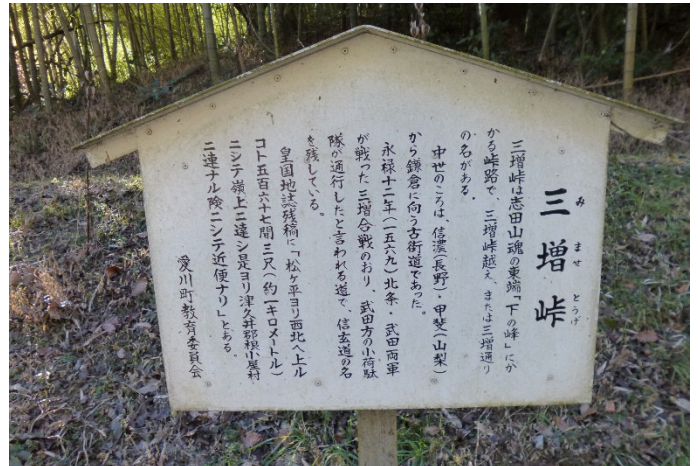 三増峠
みませとうげ
三増峠は志田山塊の東端「下の峰」にか
かる峠路で、三増峠越え、または三増通り
の名がある。
中世のころは、信濃(長野)・甲斐(山梨)
から鎌倉に向う古街道であった。
永禄十二年(一五六九)北条・武田両軍
が戦った三増合戦のおり、武田方の小荷駄
隊が通行したと言われる道で、信玄道の名
を残している。
皇国地誌残稿に「松ヶ平ヨリ西北ヘ上ル
コト五百六十七間三尺(約一キロメートル)
ニシテ嶺上ニ達シ是ヨリ津久井郡根小屋村
ニ連ナル険ニシテ近便ナリ」とある。
愛川町教育委員会